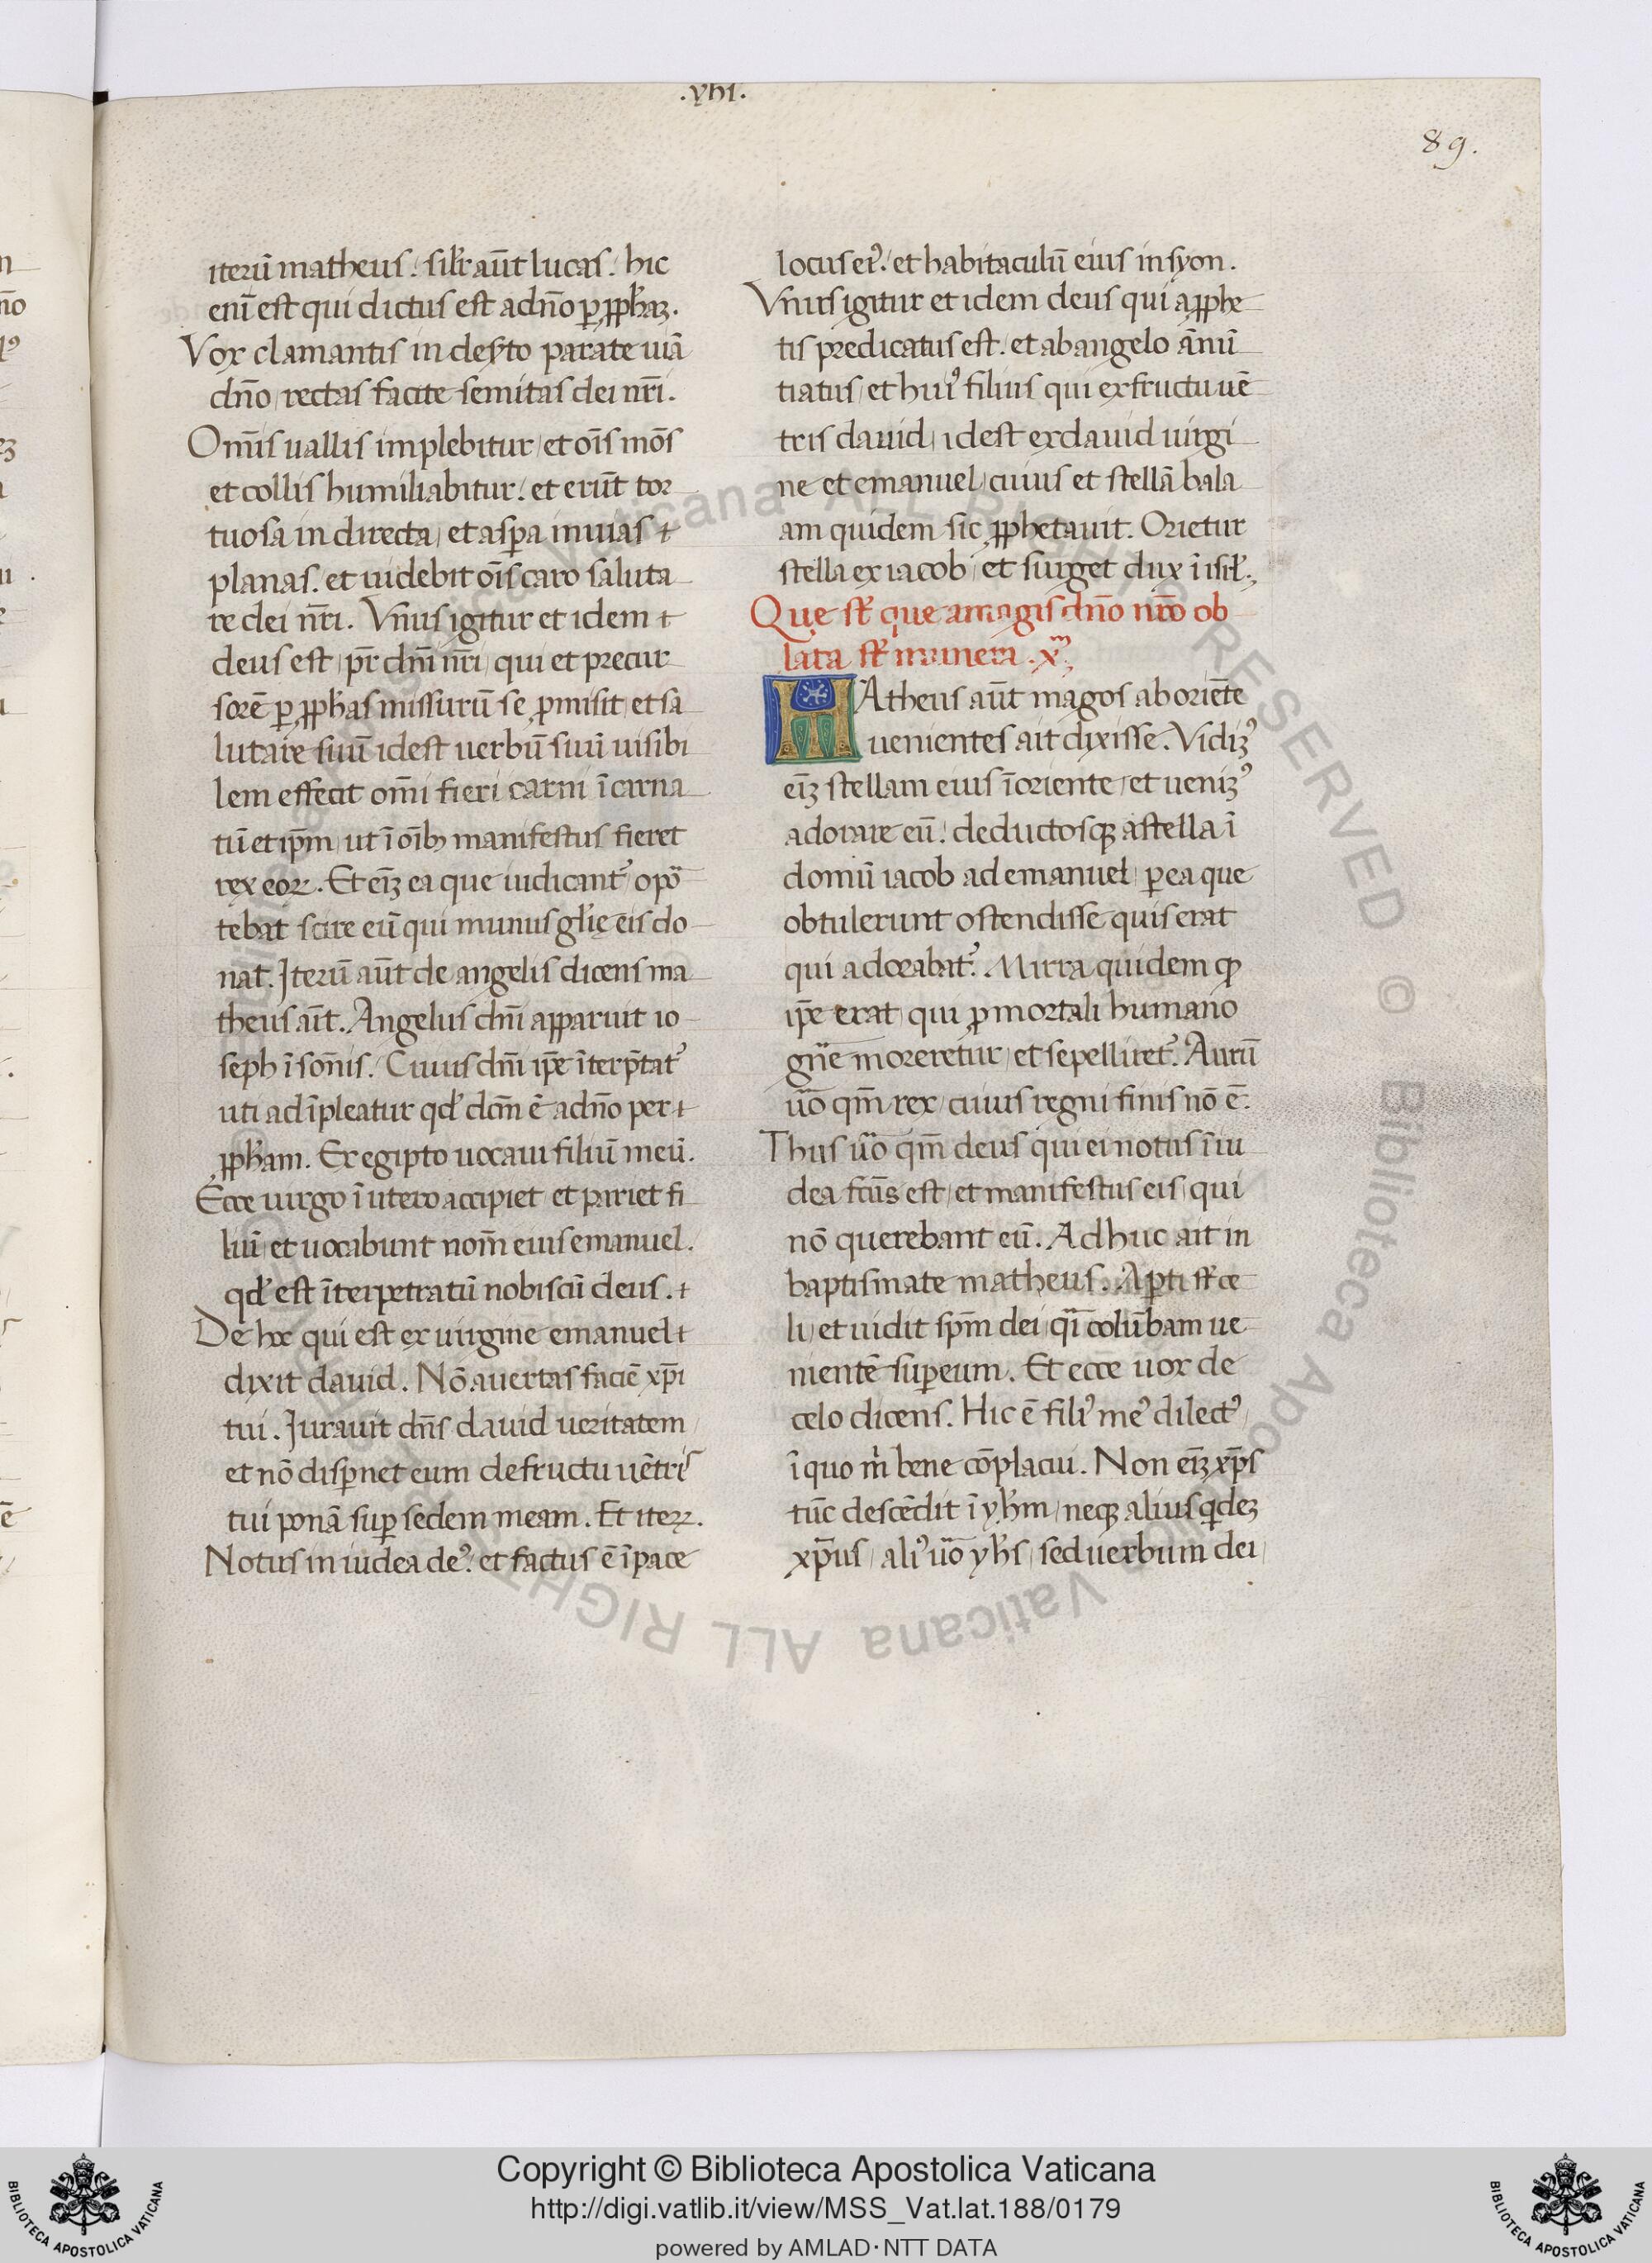 .yhı.
89.
iterū matheus. silr̄ aūt lucas. hic
enī est qui dictus est adn̄o ꝑ ꝓph̄aꝫ.
Vox clamantis in desr̄to parate uiā
dn̄o, rectas facite semitas dei nr̄i.
Omīs uallis implebitur, et oīs mōs
et collis humiliabitur. et erūt tor
tuosa in directa, et asꝑa in uias
planas. et uidebit oīs caro saluta
re dei nr̄i. Vnus igitur et idem
deus est, pr̄ dn̄i nr̄i, qui et precur
sorē ꝑ ꝓph̄as missurū se ꝓmisit, et sa
lutare suū idest uerbū suū uisibi
lem effecit omī fieri carni īcarna
tū et ip̄m, ut ī oīb; manifestus fieret
rex eoꝝ. Et eīꝫ ea que iudicant᷒ opō
tebat scire eū qui munus gl̄ię eis do
nat. Iterū aūt de angelis dicens ma
theus aīt. Angelus dn̄i apparuit io
seph ī sōnis. Cuius dn̄i ip̄e īterp̄tat᷒
uti adīpleatur qd̄ dc̄m ē adn̄o per
ꝓph̄am. Ex egipto uocaui filiū meū.
Ecce uirgo ī utero accipiet et pariet fi
liū, et uocabunt nom̄ eius emanuel.
qd̄ est īterpetratū nobiscū deus.
De hoc qui est ex uirgine emanuel
dixit dauid. Nō auertas faciē xp̄i
tui. Iurauit dn̄s dauid ueritatem
et nō disꝑnet eum de fructu uētris
tui ponā suꝑ sedem meam. Et iteꝝ.
Notus in iudea de᷒. et factus ē ī pace
locus ei᷒. et habitaculū eius in syon.
Vnus igitur et idem deus qui a ꝓphe
tis predicatus est. et ab angelo ānū
tiatus, et hui᷒ filius qui ex fructu uē
tris dauid, idest ex dauid uirgi
ne et emanuel, cuius et stellā bala
am quidem sic ꝓphetauit. Orietur
stella ex iacob, et surget dux ī isrl̄.
Que st̄ que a magis dn̄o nr̄o ob
lata st̄ munera .x.
MAtheus aūt magos ab oriēte
uenientes ait dixisse. Vidiꝫ᷒
eīꝫ stellam eius ī oriente, et ueniꝫ᷒
adorare eū. deductosqꝫ a stella ī
domū iacob ad emanuel, ꝑ ea que
obtulerunt ostendisse quis erat
qui adorabat᷒. Mirra quidem qꝫ
ip̄e erat, qui ꝓ mortali humano
gn̄e moreretur, et sepelliret᷒. Aurū
ūo qm̄ rex, cuius regni finis nō ē.
Thus ūo qm̄ deus qui ei notus ī iu
dea fc̄us est, et manifestus eis, qui
nō querebant eū. Adhuc ait in
baptismate matheus. Aꝑti st̄ ce
li, et uidit sp̄m dei qͣi colūbam ue
nientē suꝑ eum. Et ecce uox de
celo dicens. Hic ē fili᷒ me᷒ dilect᷒,
ī quo m̄ bene cōplacui. Non eīꝫ xp̄s
tūc descēdit ī yh̄m, neqꝫ alius qdeꝫ
xp̄us, ali᷒ ūo yh̄s, sed uerbum dei
Copyright © Biblioteca Apostolica Vaticana
http://digi.vatlib.it/view/MSS_Vat.lat.188/0179
powered by AMLAD·NTT DATA